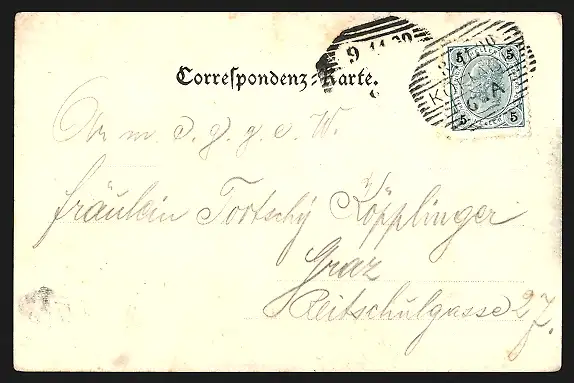 9.11.00
Correspondenz-Karte.
5 5
5 5
An m. d. g. g. e. W.
Fräulein Tortschÿ Köpplinger
Graz
Reitschulgasse 27.